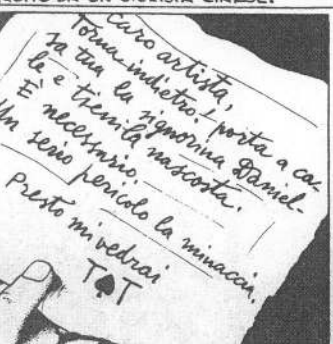 DA UN CINESE.
Caro artista,
torna indietro! porta a ca-
sa tua la signorina Daniel-
le e tienila nascosta.
È necessario.
Un serio pericolo la minaccia.
Presto mi vedrai
T♠T